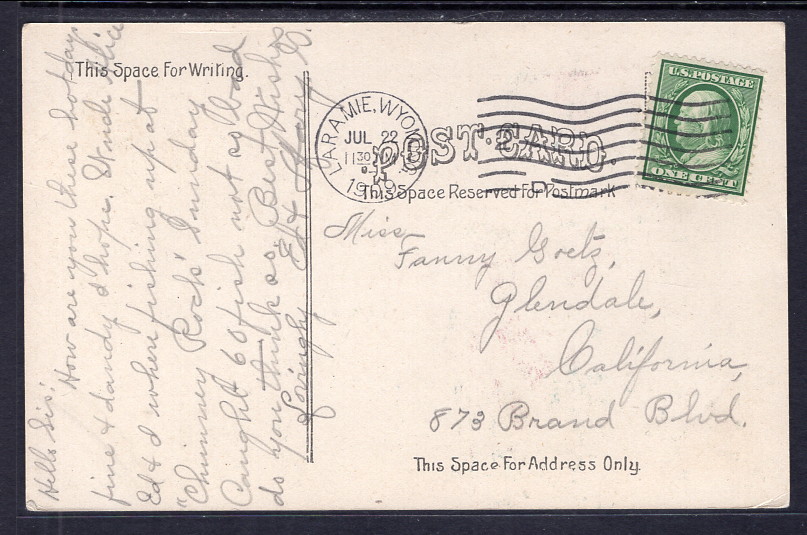 This Space For Writing.
"Hello Sis:
How are you these hot days
fine & dandy I hope. Uncle
Ed & I when fishing up at
"Chimney Rock" Sunday
Caught 60 fish not so bad
do you think so. Best Wishes
Lovingly Ed &
LARAMIE, WYO.
JUL 22
1130
POST CARD.
This Space Reserved For Postmark
U.S. POSTAGE
ONE CENT
Miss
Fanny Goetz,
Glendale,
California,
873 Brand Blvd.
This Space For Address Only.